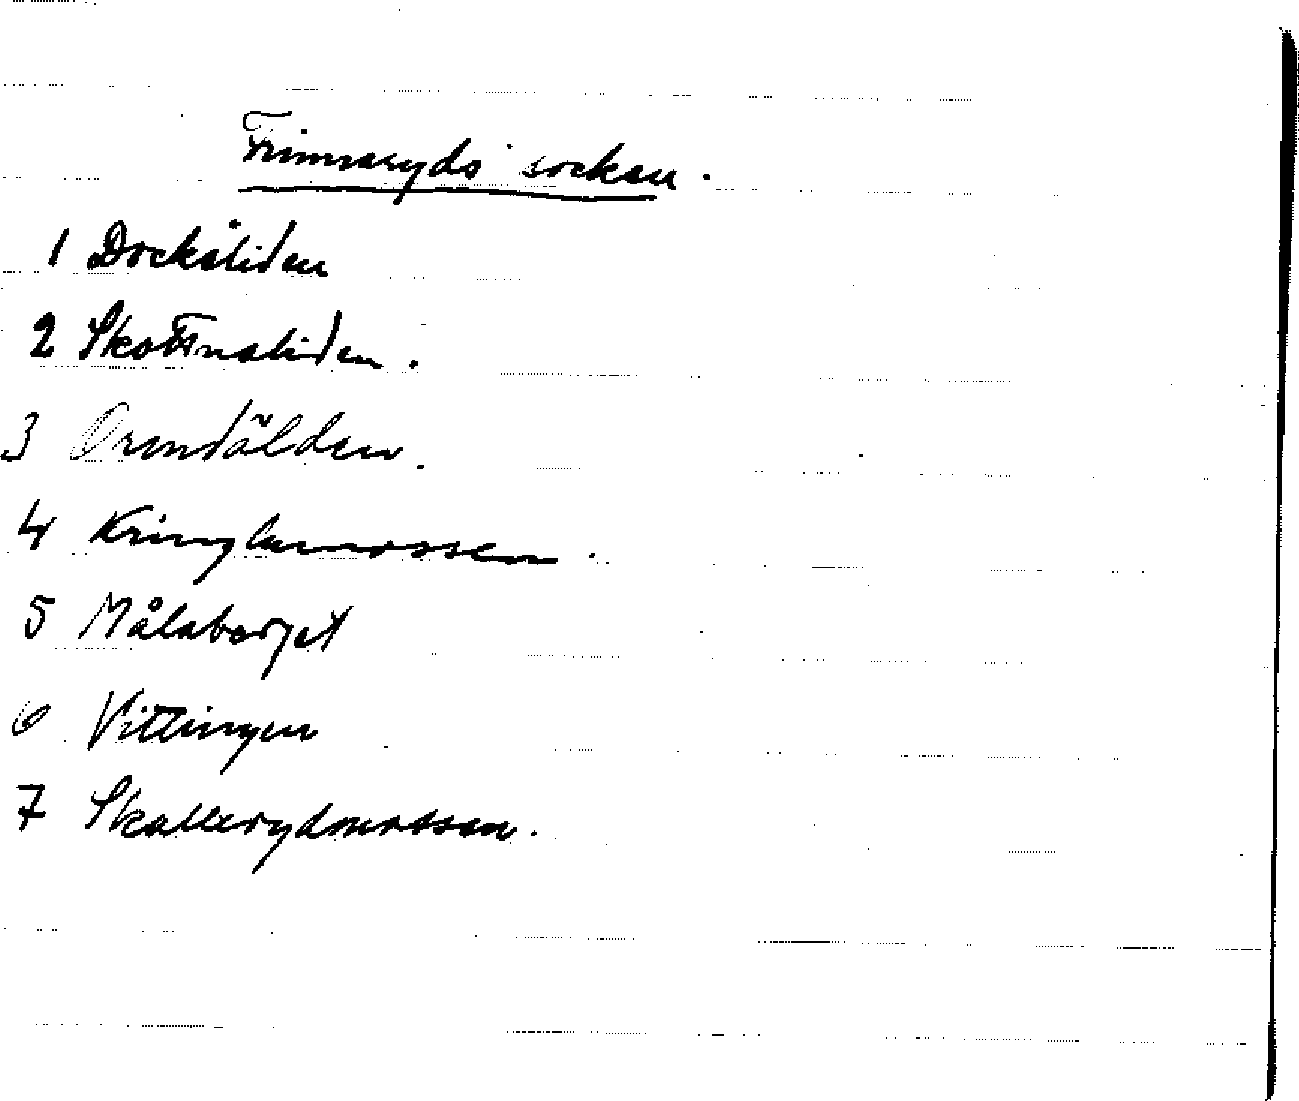 Frinnaryds socken.
1 Dockåliden
2 Skottnaliden.
3
4 Kringlamossen.
5 Målaberget
6 Vittingen
7 Skallerydmossen.